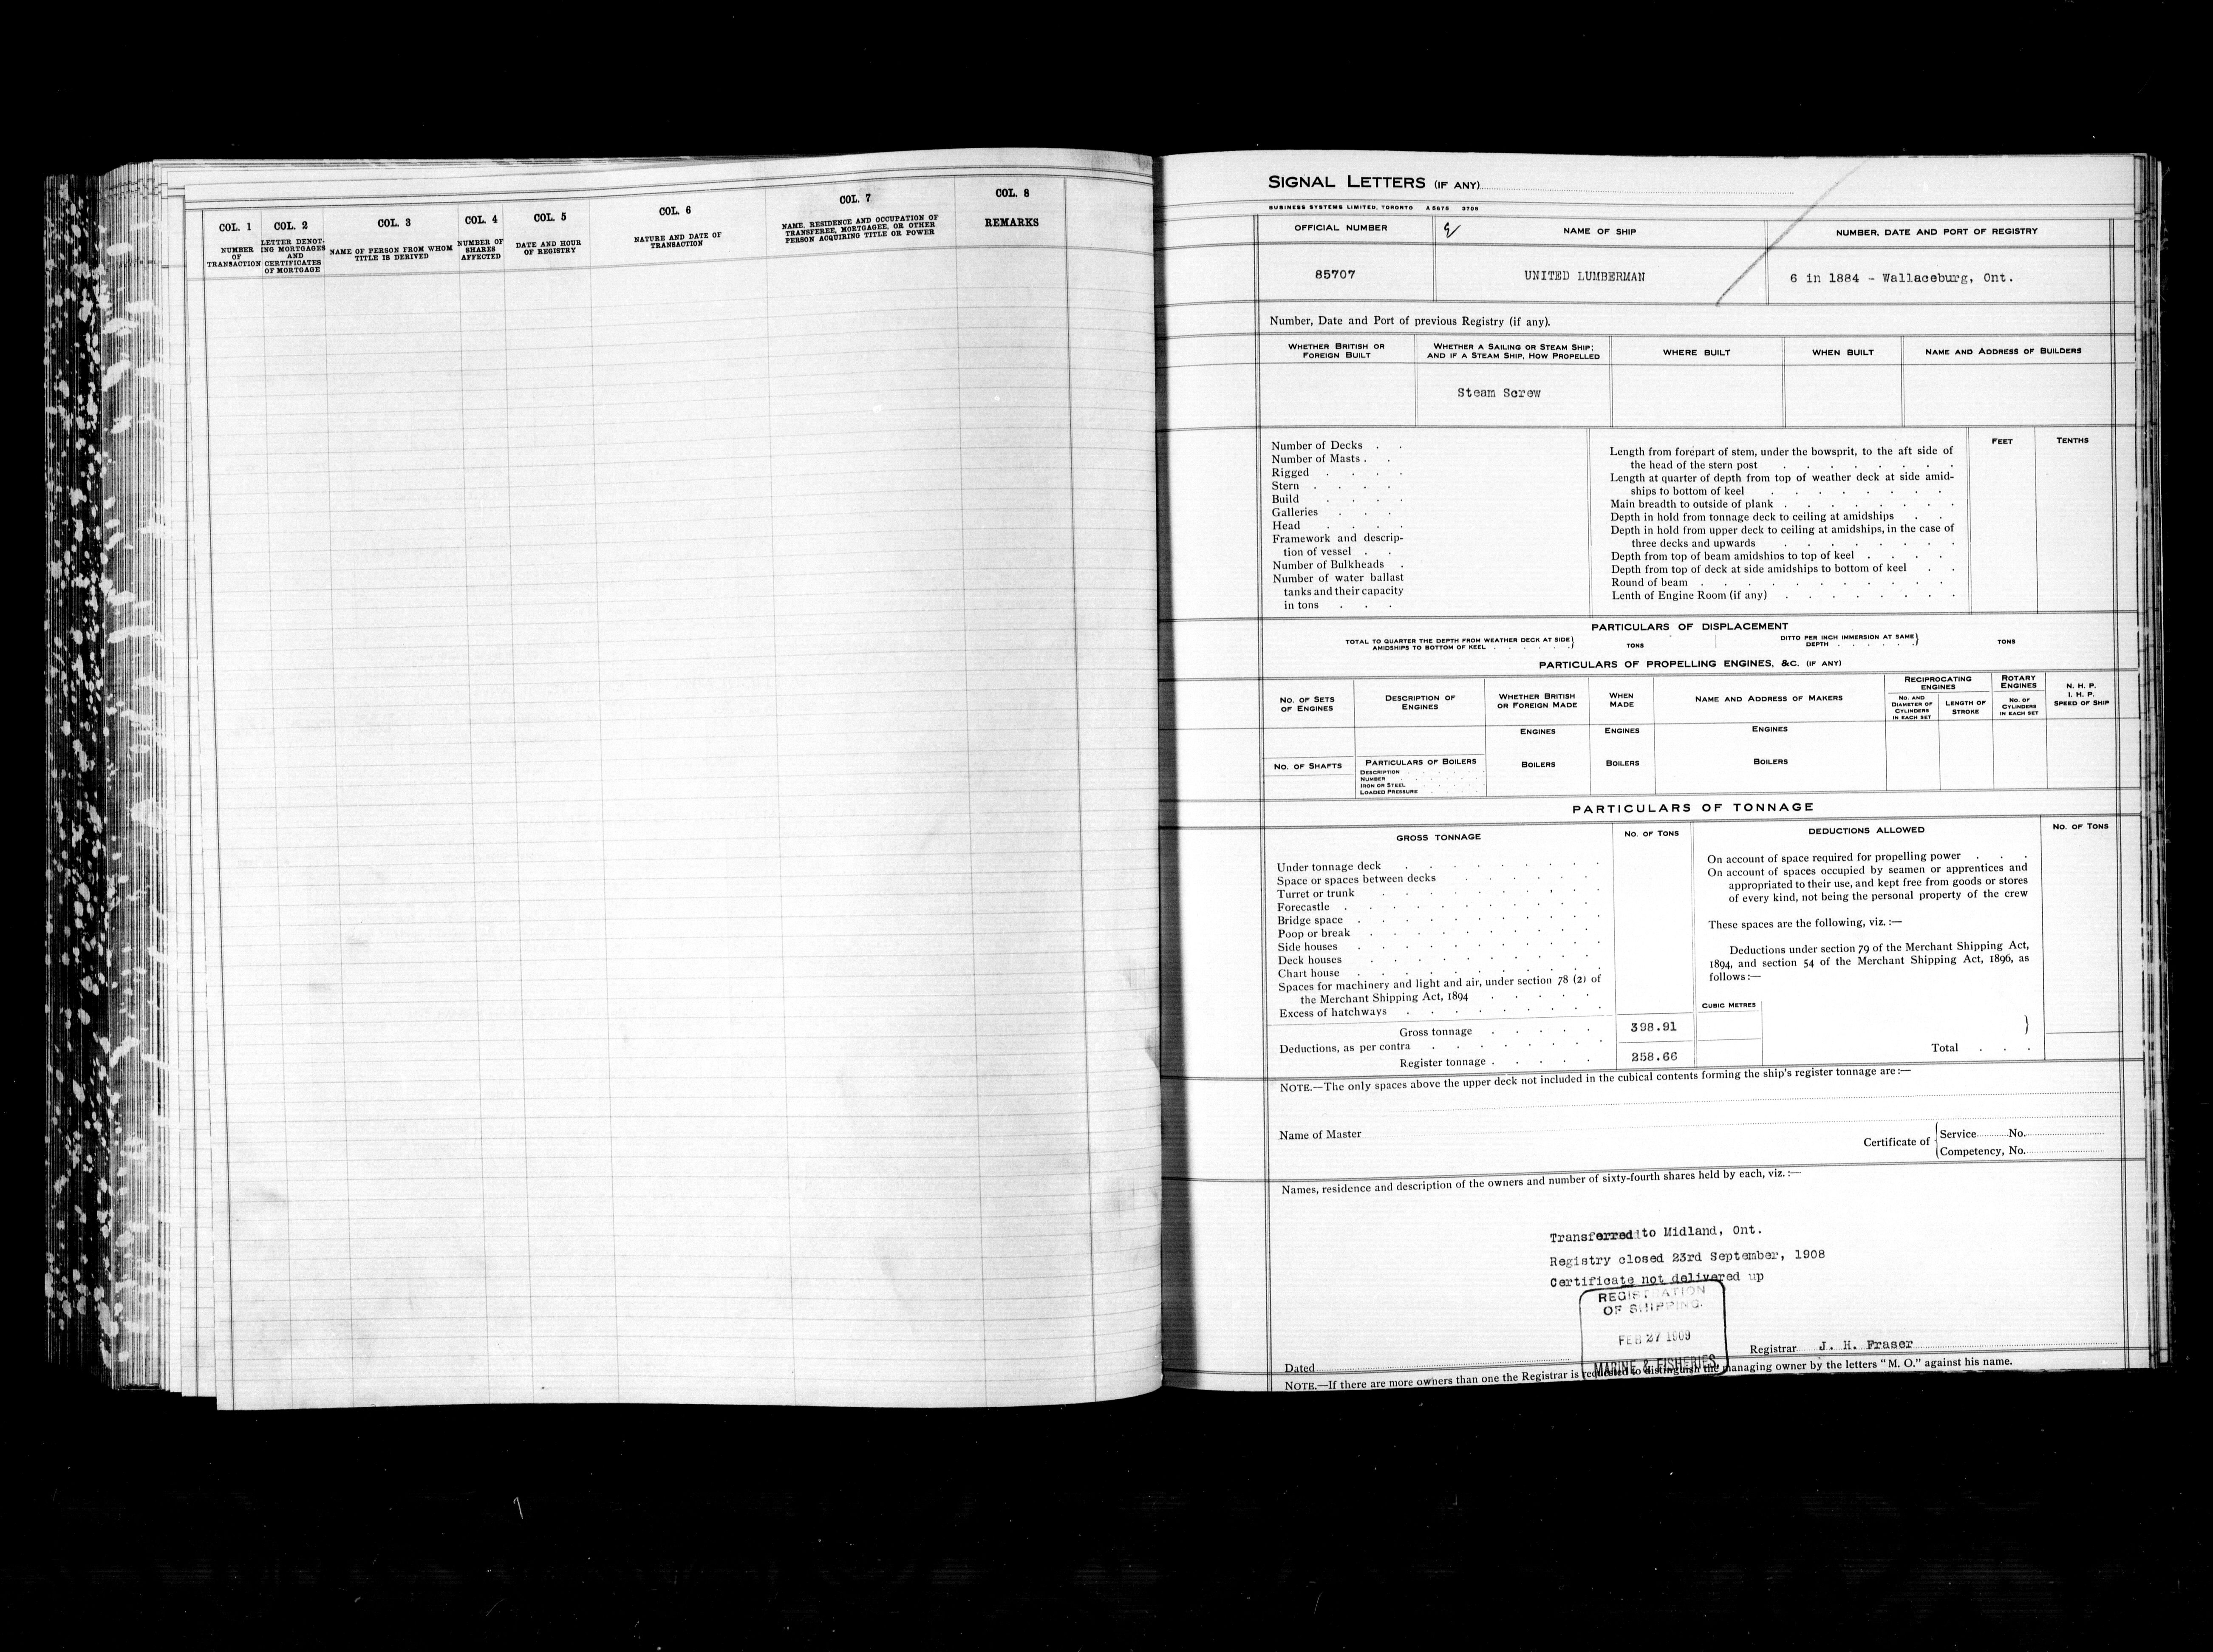 COL. 1
NUMBER
OF
TRANSACTION
COL. 2
LETTER DENOT-
ING MORTGAGES
AND
CERTIFICATES
OF MORTGAGE
COL. 3
NAME OF PERSON FROM WHOM
TITLE IS DERIVED
COL. 4
NUMBER OF
SHARES
AFFECTED
COL. 5
DATE AND HOUR
OF REGISTRY
COL. 6
NATURE AND DATE OF
TRANSACTION
COL. 7
NAME, RESIDENCE AND OCCUPATION OF
TRANSFEREE, MORTGAGEE, OR OTHER
PERSON ACQUIRING TITLE OR POWER
COL. 8
REMARKS
SIGNAL LETTERS (IF ANY)
BUSINESS SYSTEMS LIMITED, TORONTO A 5675 3708
OFFICIAL NUMBER
NAME OF SHIP
NUMBER, DATE AND PORT OF REGISTRY
85707
UNITED LUMBERMAN
6 in 1884 - Wallaceburg, Ont.
Number, Date and Port of previous Registry (if any).
WHETHER BRITISH OR
FOREIGN BUILT
WHETHER A SAILING OR STEAM SHIP;
AND IF A STEAM SHIP, HOW PROPELLED
WHERE BUILT
WHEN BUILT
NAME AND ADDRESS OF BUILDERS
Steam Screw
Number of Decks . .
Number of Masts . .
Rigged . . . .
Stern . . . .
Build . . . .
Galleries . . .
Head . . . .
Framework and descrip-
tion of vessel . .
Number of Bulkheads .
Number of water ballast
tanks and their capacity
in tons . . .
FEET
TENTHS
Length from forepart of stem, under the bowsprit, to the aft side of
the head of the stern post . . . . . . .
Length at quarter of depth from top of weather deck at side amid-
ships to bottom of keel . . . . . . .
Main breadth to outside of plank . . . . . . .
Depth in hold from tonnage deck to ceiling at amidships . .
Depth in hold from upper deck to ceiling at amidships, in the case of
three decks and upwards . . . . . . .
Depth from top of beam amidships to top of keel . . . .
Depth from top of deck at side amidships to bottom of keel . .
Round of beam . . . . . . . . . .
Lenth of Engine Room (if any) . . . . . . . .
PARTICULARS OF DISPLACEMENT
TOTAL TO QUARTER THE DEPTH FROM WEATHER DECK AT SIDE}
AMIDSHIPS TO BOTTOM OF KEEL . . . . . .
TONS
DITTO PER INCH IMMERSION AT SAME}
DEPTH . . . . . .
TONS
PARTICULARS OF PROPELLING ENGINES, &C. (IF ANY)
NO. OF SETS
OF ENGINES
DESCRIPTION OF
ENGINES
WHETHER BRITISH
OR FOREIGN MADE
WHEN
MADE
NAME AND ADDRESS OF MAKERS
RECIPROCATING
ENGINES
NO. AND
DIAMETER OF
CYLINDERS
IN EACH SET
LENGTH OF
STROKE
ROTARY
ENGINES
NO. OF
CYLINDERS
IN EACH SET
N. H. P.
I. H. P.
SPEED OF SHIP
ENGINES
ENGINES
ENGINES
NO. OF SHAFTS
PARTICULARS OF BOILERS
DESCRIPTION . . . . . .
NUMBER . . . . . . .
IRON OR STEEL . . . . . .
LOADED PRESSURE . . . . .
BOILERS
BOILERS
BOILERS
PARTICULARS OF TONNAGE
GROSS TONNAGE
NO. OF TONS
DEDUCTIONS ALLOWED
NO. OF TONS
Under tonnage deck . . . . . . . .
Space or spaces between decks . . . . . .
Turret or trunk . . . . . . . .
Forecastle . . . . . . . . .
Bridge space . . . . . . . . .
Poop or break . . . . . . . .
Side houses . . . . . . . . .
Deck houses . . . . . . . . .
Chart house . . . . . . . . .
Spaces for machinery and light and air, under section 78 (2) of
the Merchant Shipping Act, 1894 . . . . .
Excess of hatchways . . . . . . . .
Gross tonnage . . . . .
398.91
Deductions, as per contra . . . . . . .
Register tonnage . . . . .
258.66
On account of space required for propelling power . . .
On account of spaces occupied by seamen or apprentices and
appropriated to their use, and kept free from goods or stores
of every kind, not being the personal property of the crew
These spaces are the following, viz. :—
Deductions under section 79 of the Merchant Shipping Act,
1894, and section 54 of the Merchant Shipping Act, 1896, as
follows:—
CUBIC METRES
Total . . .
NOTE.—The only spaces above the upper deck not included in the cubical contents forming the ship's register tonnage are:—
Name of Master
Certificate of
Service No.
Competency, No.
Names, residence and description of the owners and number of sixty-fourth shares held by each, viz. :—
Transferred to Midland, Ont.
Registry closed 23rd September, 1908
Certificate not delivered up
REGISTRATION
OF SHIPPING.
FEB 27 1909
MARINE & FISHERIES
Dated
Registrar J. H. Fraser
NOTE.—If there are more owners than one the Registrar is requested to distinguish the managing owner by the letters "M. O." against his name.